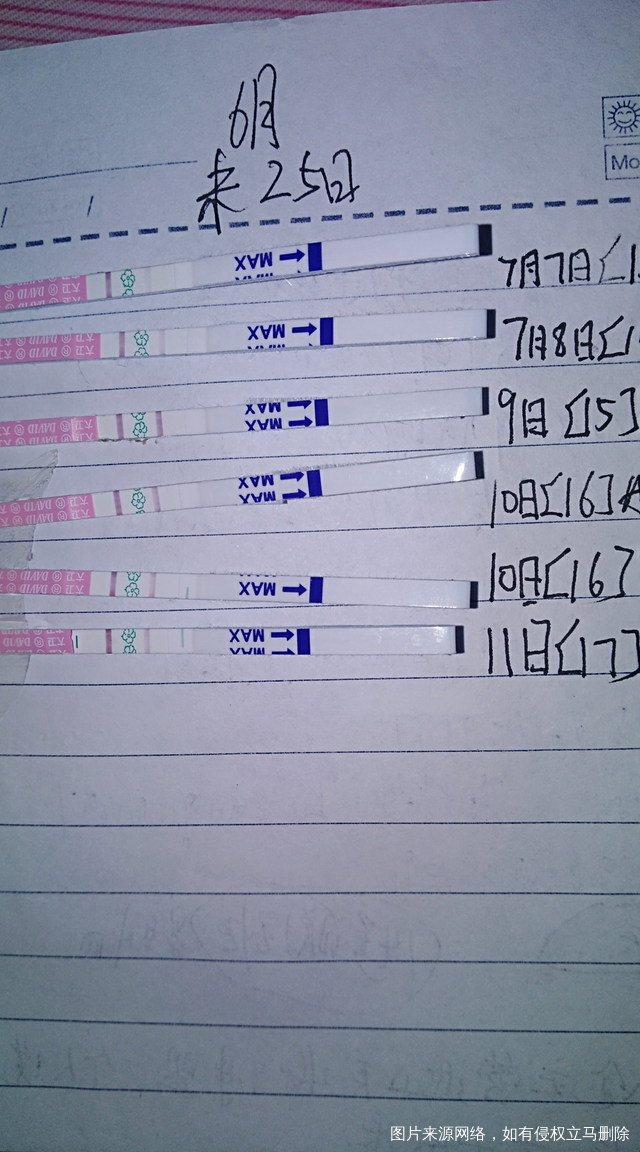 6月
来25日
Mo
MAX
7月7日[1
MAX
7月8日[1
MAX
MAX
9日[15]
MAX
MAX
10日[16]
大卫 ® DAVID ® 大卫
MAX
10日[16]
大卫 ® DAVID ® 大卫
MAX
MAX
11日[17]
图片来源网络，如有侵权立马删除